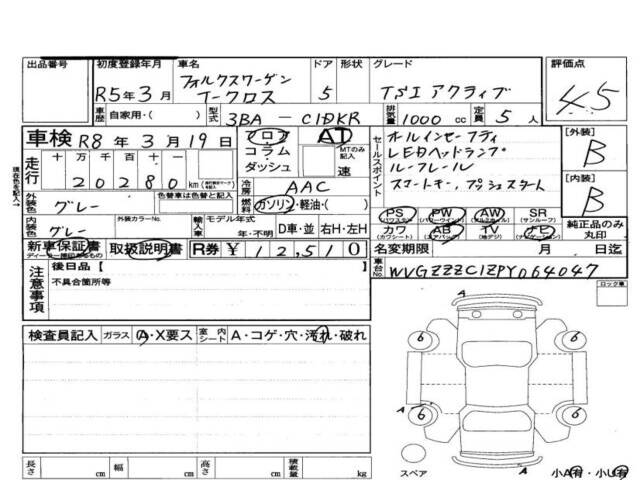 出品番号 初度登録年月 車名 ドア 形状 グレード 評価点
R5年3月 フォルクスワーゲン Tークロス 5 TSI アクティブ 4.5
車歴 自家用・( ) 型式 3BA - C1DKR 排気量 1000 cc 定員 5 人
車検 R8年 3月 19日 フロア AT セールスポイント オールインセーフティ [外装]
コラム MTのみ記入 LEDヘッドランプ B
走行 十万 万 千 百 十 一 ダッシュ 速 ルーフレール
現在色を記入→ 2 0 2 8 0 km 冷房 AAC スマートキー,プッシュスタート [内装]
外装色 グレー 色替車は色替と記入 燃料 ガソリン・軽油・( ) B
PS PW AW SR
(パワステ) (パワーウィンド) (アルミホイール) (サンルーフ)
内装色 グレー 外装カラーNo. 輸入車 モデル年式 年・不明 D車・並 右H・左H
カワ AB TV ナビ 純正品のみ丸印
(カワシート) (エアバッグ) (地デジ) (ナビゲーション)
新車保証書 取扱説明書 R券 ¥ 12,510 名変期限 月 日迄
ディーラー捺印のあるもの
注意事項 後日品【 】 車台No. WVGZZZC1ZPY064047
不具合箇所等 ロック車
検査員記入 ガラス A・X要ス 室内 シート 内張り A・コゲ・穴・汚れ・破れ
A
6 6
A 6 6
スペア A
長さ cm 幅 cm 高さ cm 積載量 kg 小A有・小U有